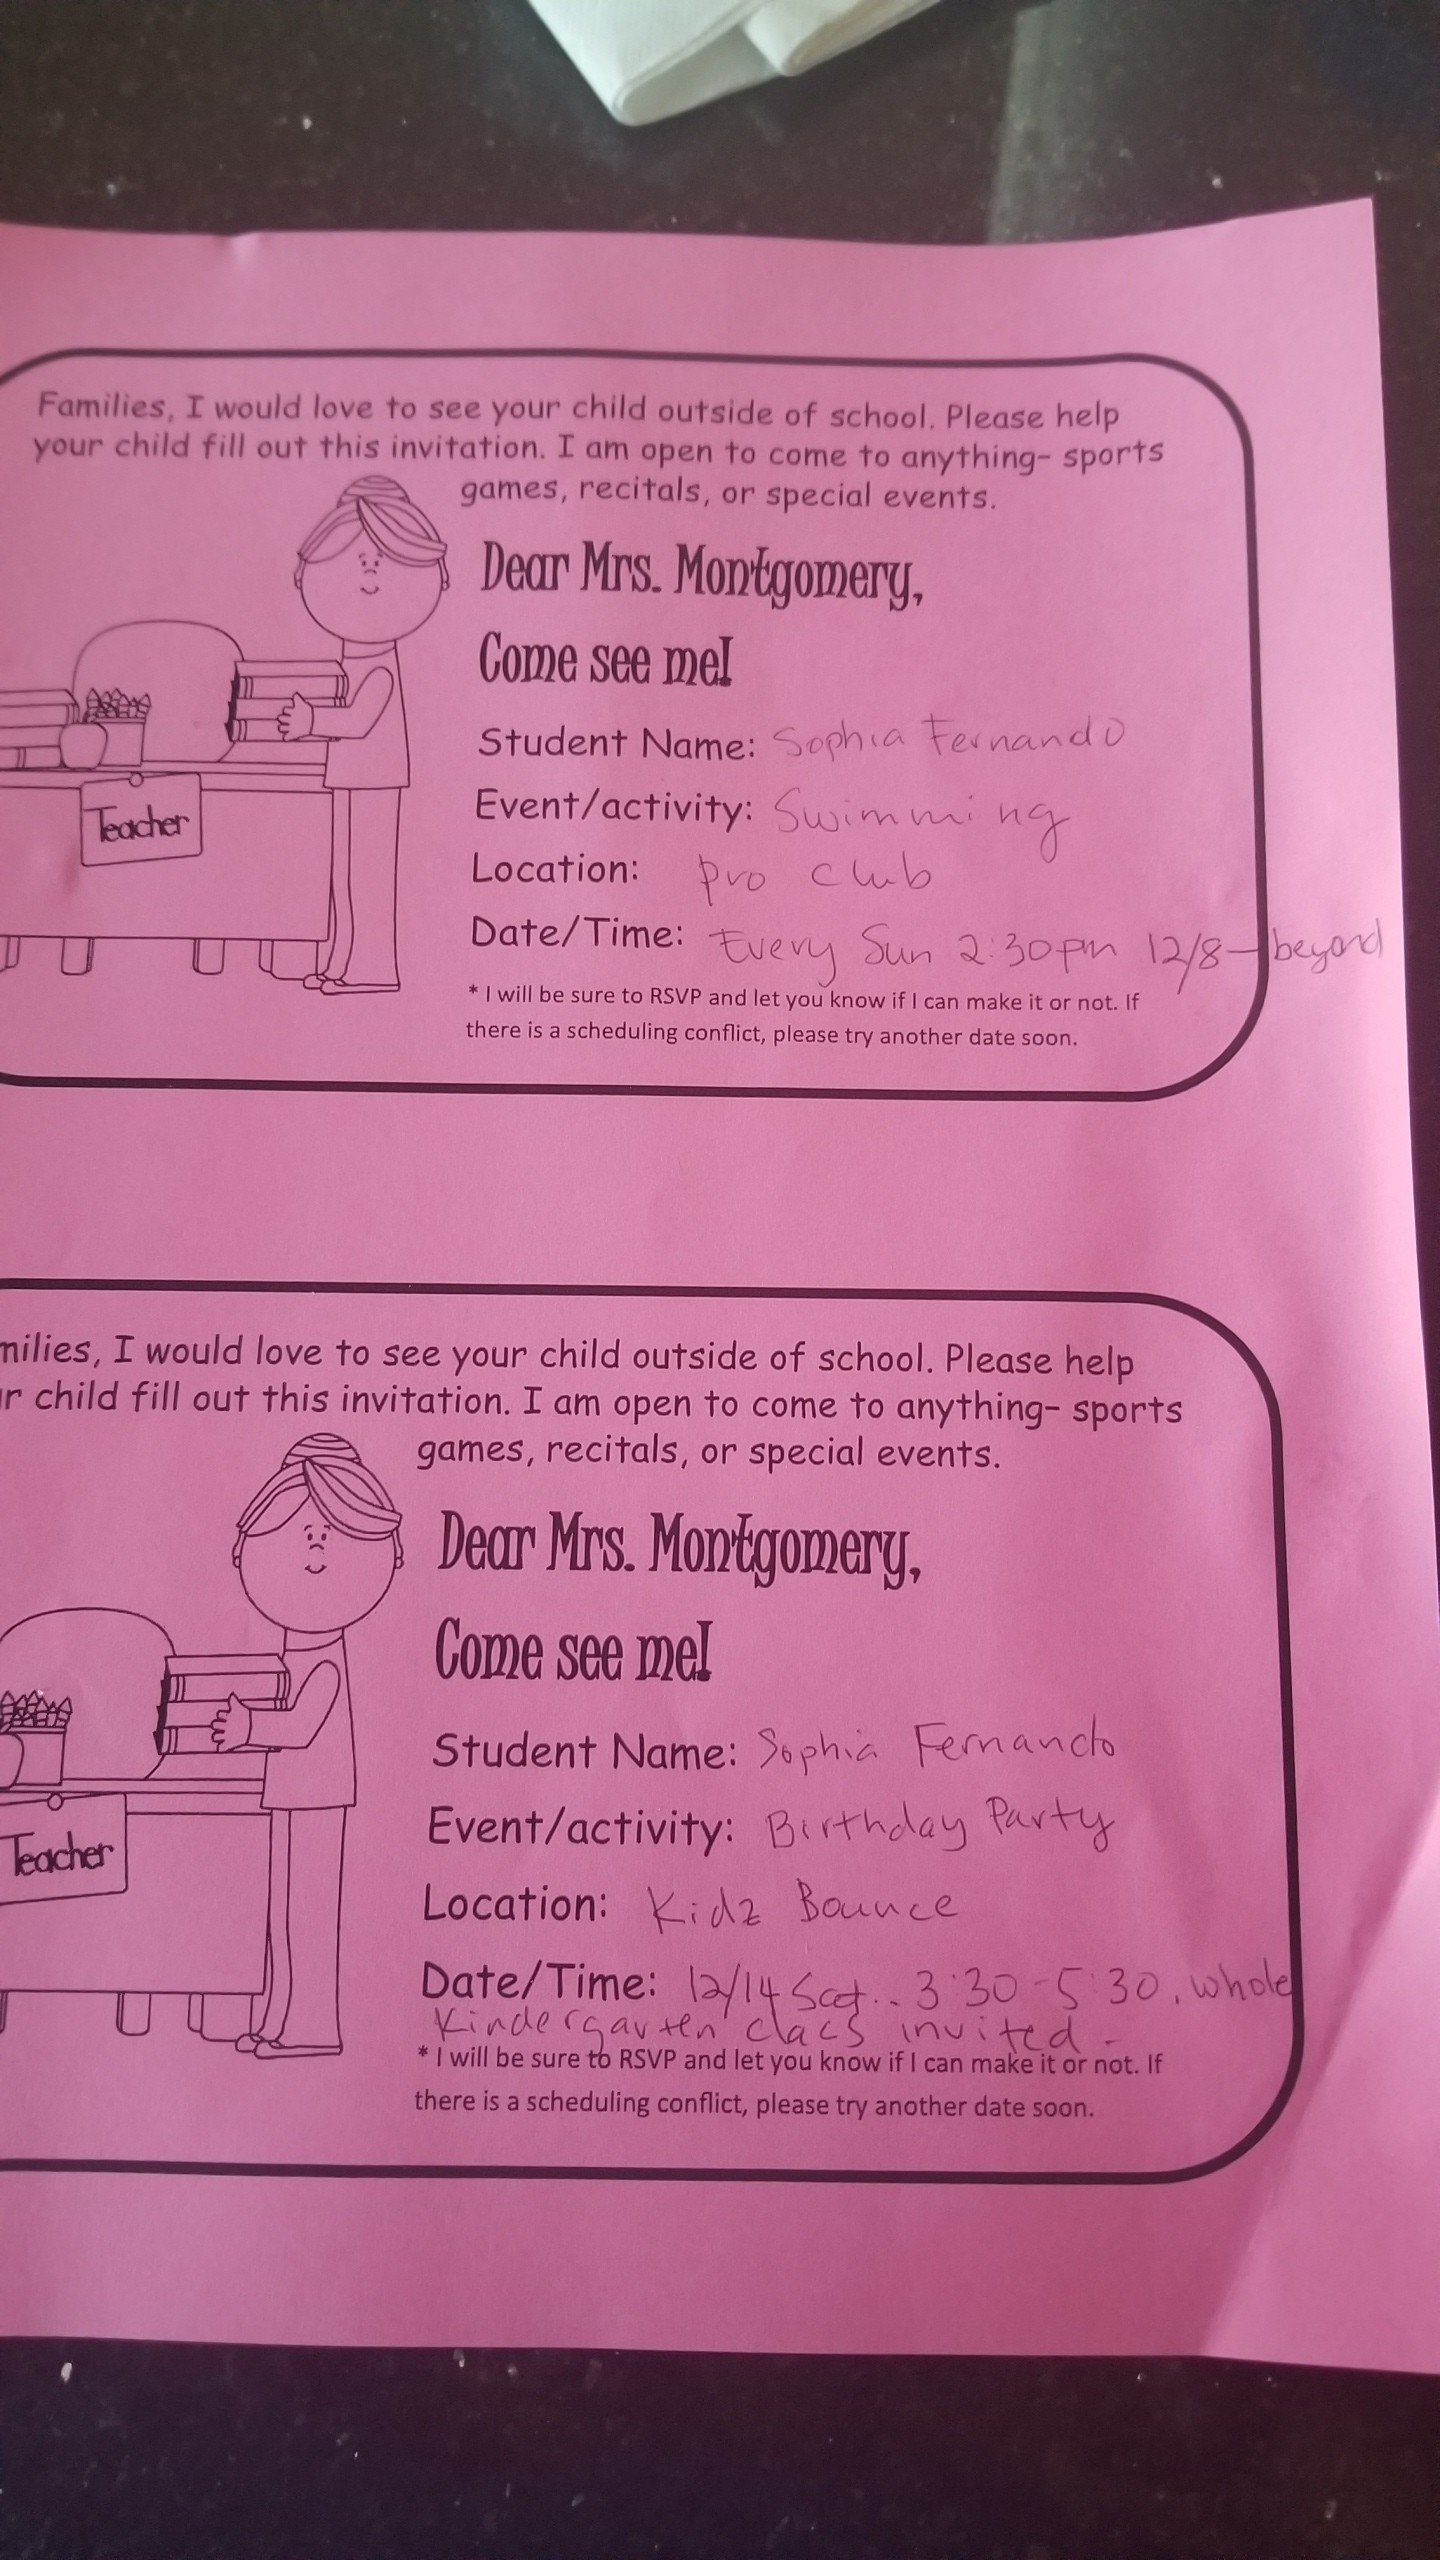 Families, I would love to see your child outside of school. Please help
your child fill out this invitation. I am open to come to anything- sports
games, recitals, or special events.
Dear Mrs. Montgomery,
Come see me!
Student Name: Sophia Fernando
Event/activity: Swimming
Teacher
Location: pro club
Date/Time: Every Sun 2:30pm 12/8-beyond
* I will be sure to RSVP and let you know if I can make it or not. If
there is a scheduling conflict, please try another date soon.
milies, I would love to see your child outside of school. Please help
r child fill out this invitation. I am open to come to anything- sports
games, recitals, or special events.
Dear Mrs. Montgomery,
Come see me!
Student Name: Sophia Fernando
Event/activity: Birthday Party
Teacher
Location: Kidz Bounce
Date/Time: 12/14 Sat.. 3:30-5:30. whole
Kindergarten clacs invited.
* I will be sure to RSVP and let you know if I can make it or not. If
there is a scheduling conflict, please try another date soon.